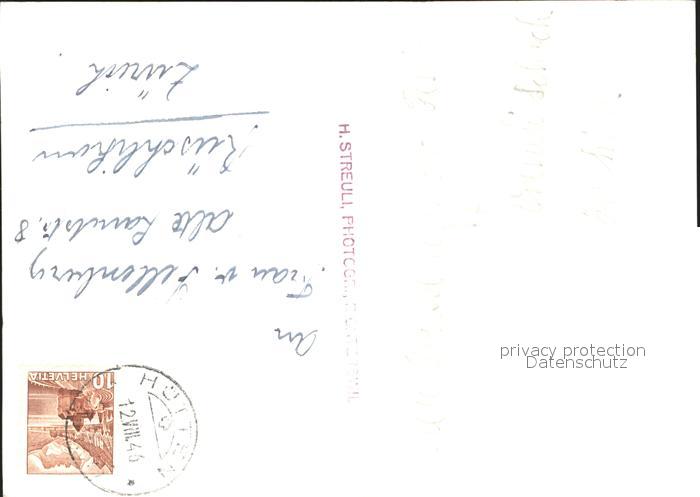 An
Frau v. Fellenberg
Alte Landstr. 8
Rüschlikon
Zürich
H. STREULI, PHOTOGR.,
HELVETIA
10
HÜTTEN
12.VIII.46
privacy protection
Datenschutz